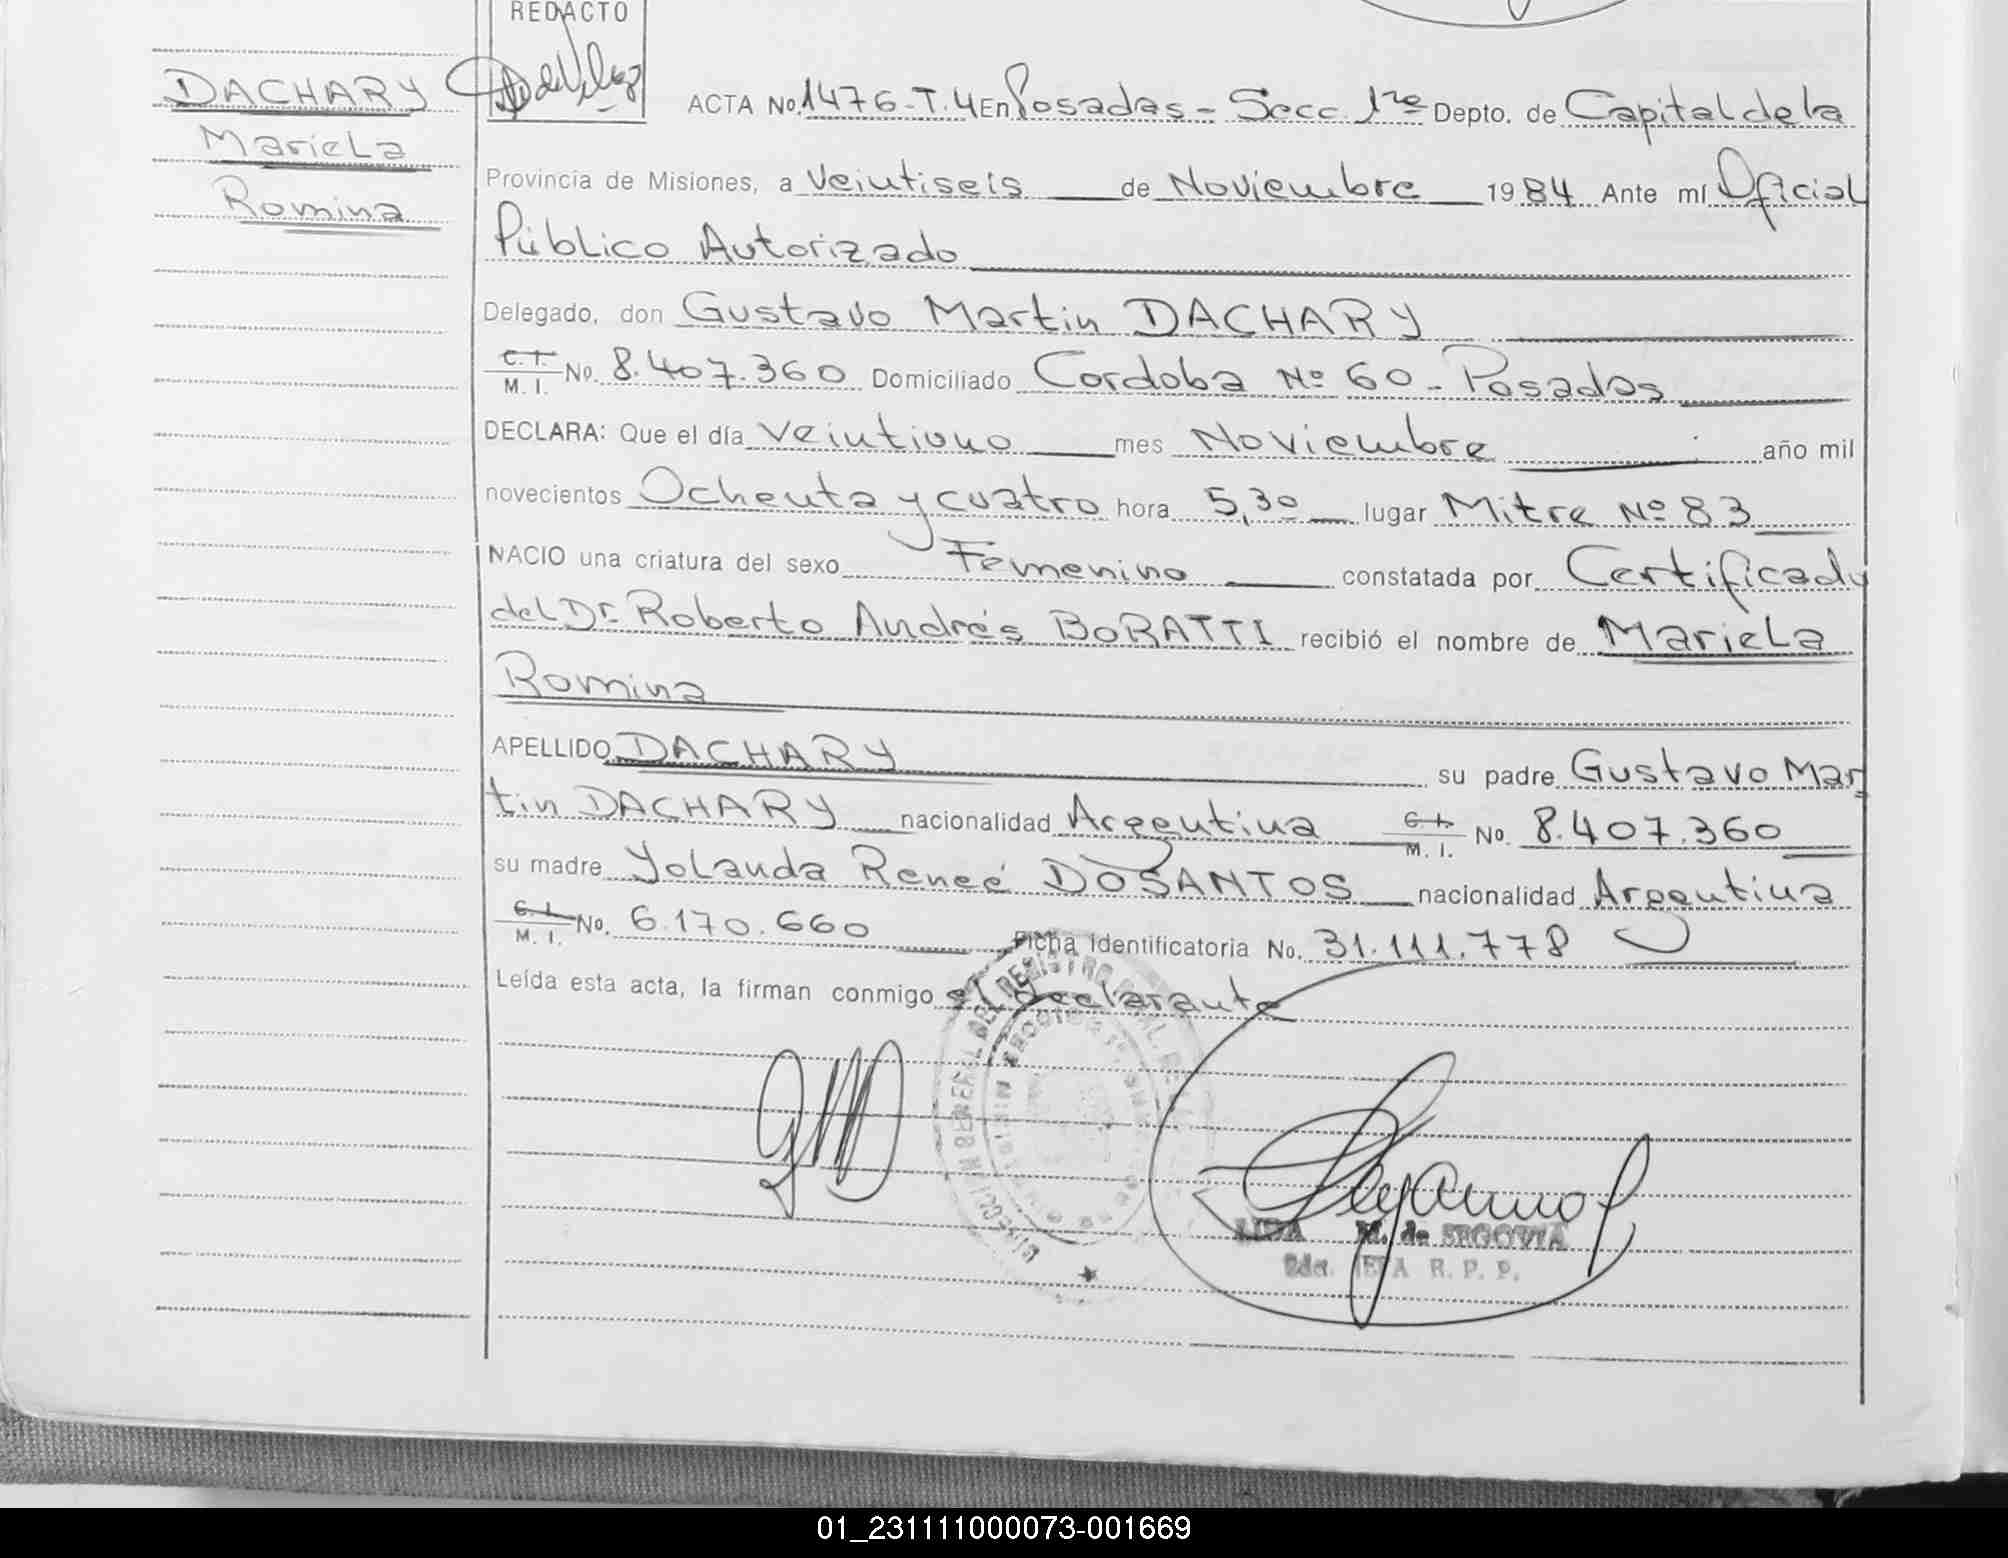 REDACTO
DACHARY
Mariela
Romina
ACTA No. 1476-T.4 En Posadas - Secc 1ra Depto. de Capital de la
Provincia de Misiones, a Veintiseis de Noviembre 1984 Ante mí Oficial
Público Autorizado
Delegado, don Gustavo Martin DACHARY
C.I. M. I. No. 8.407.360 Domiciliado Cordoba Nº 60 - Posadas
DECLARA: Que el día Veintiuno mes Noviembre año mil
novecientos Ochenta y cuatro hora 5,30 lugar Mitre Nº 83
NACIO una criatura del sexo Femenino constatada por Certificado
del Dr. Roberto Andrés BORATTI recibió el nombre de Mariela
Romina
APELLIDO DACHARY su padre Gustavo Mar
tin DACHARY nacionalidad Argentina C.I. M. I. No. 8.407.360
su madre Yolanda Reneé DOSANTOS nacionalidad Argentina
C.I. M. I. No. 6.170.660 Ficha Identificatoria No. 31.111.778
Leída esta acta, la firman conmigo el declarante
LIDA M. de SEGOVIA
R. P. P.
01_231111000073-001669